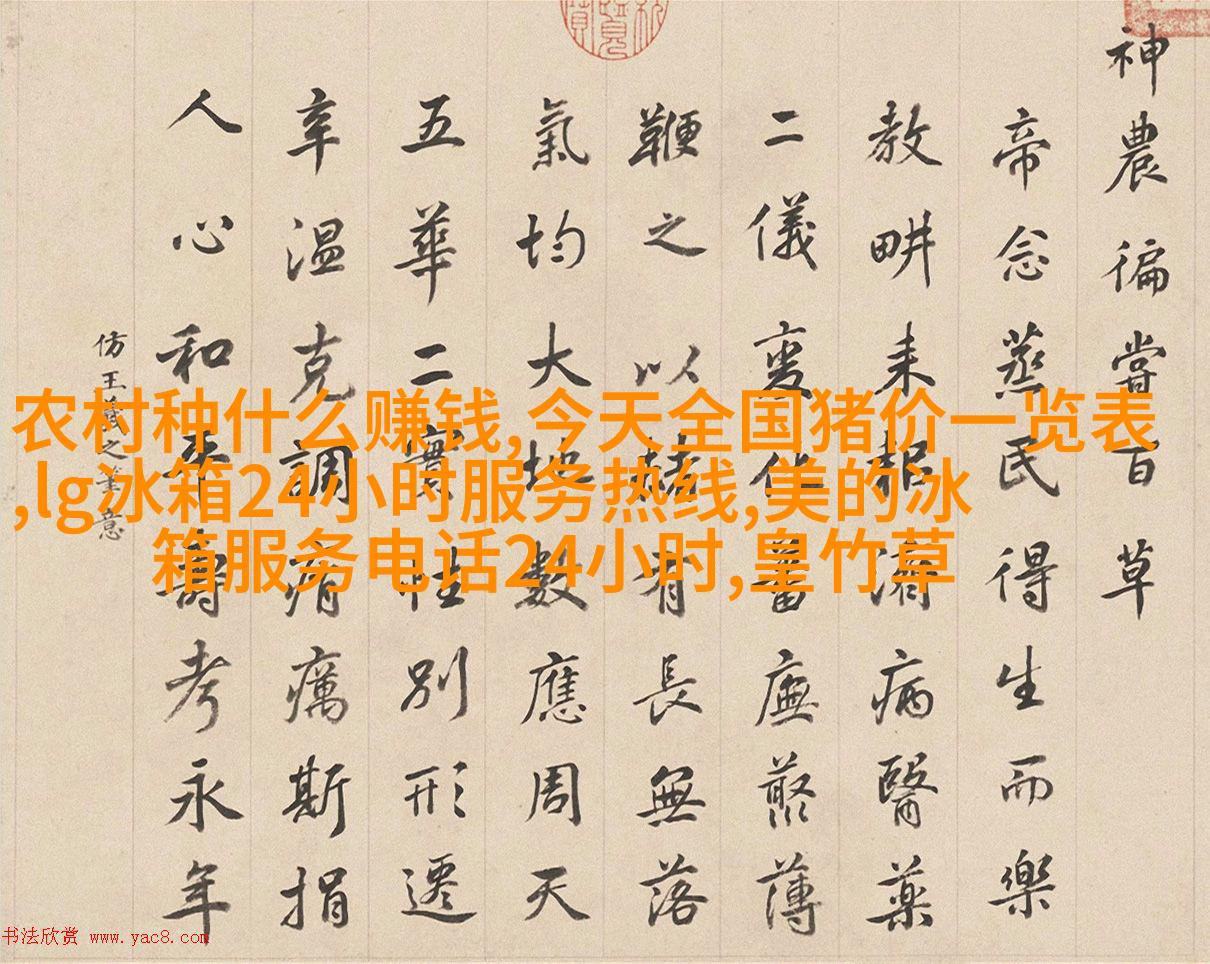 神農徧嘗百草
帝念蒸民得生而樂
教畊耒耜濟病醫藥
二儀變化蕃廡藂薄
鞭之以赭有長無落
氣均大地數應周天
五華二實性別形遷
辛溫克調痟癘斯捐
人心和平壽考永年
仿王羲之筆意
农村种什么赚钱,今天全国猪价一览表
,lg冰箱24小时服务热线,美的冰
箱服务电话24小时,皇竹草
书法欣赏 www.yac8.com